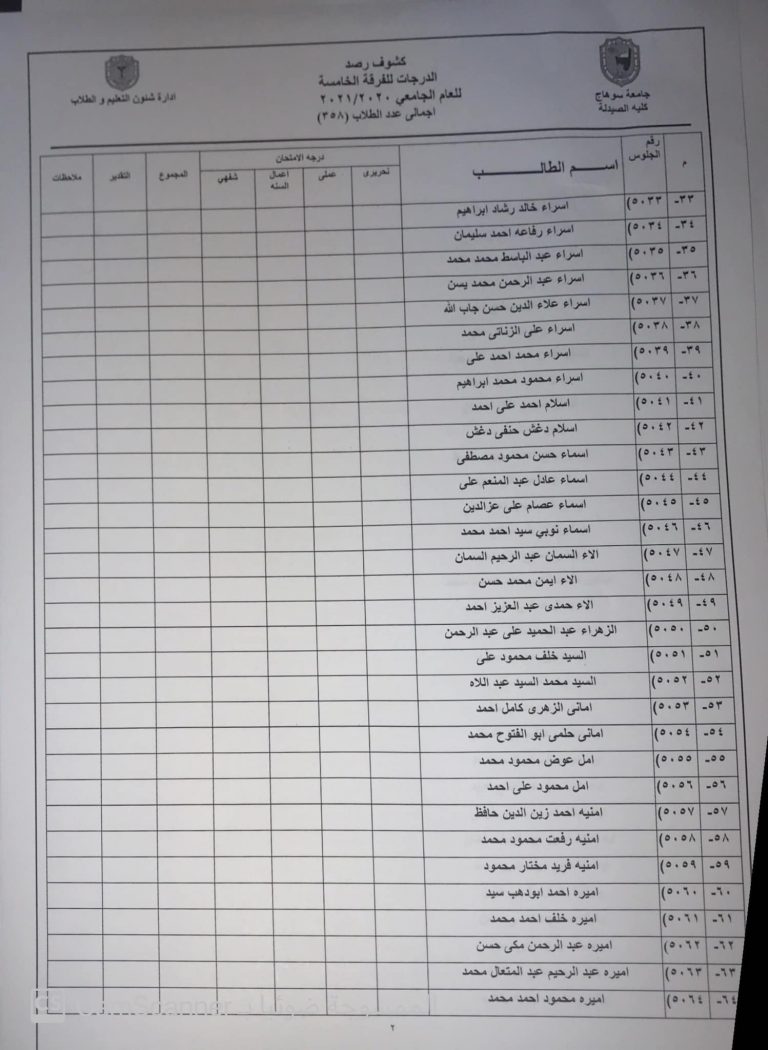 جامعة سوهاج
كليه الصيدلة
كشوف رصد
الدرجات للفرقة الخامسة
للعام الجامعي ٢٠٢١/٢٠٢٠
اجمالى عدد الطلاب (٣٥٨)
ادارة شئون التعليم و الطلاب
م رقم الجلوس اســم الطالــــب درجه الامتحان المجموع التقدير ملاحظات
تحريرى عملى اعمال السنه شفهي
٣٣- (٥٠٣٣ اسراء خالد رشاد ابراهيم
٣٤- (٥٠٣٤ اسراء رفاعه احمد سليمان
٣٥- (٥٠٣٥ اسراء عبد الباسط محمد محمد
٣٦- (٥٠٣٦ اسراء عبد الرحمن محمد يسن
٣٧- (٥٠٣٧ اسراء علاء الدين حسن جاب الله
٣٨- (٥٠٣٨ اسراء على الزناتى محمد
٣٩- (٥٠٣٩ اسراء محمد احمد على
٤٠- (٥٠٤٠ اسراء محمود محمد ابراهيم
٤١- (٥٠٤١ اسلام احمد على احمد
٤٢- (٥٠٤٢ اسلام دغش حنفى دغش
٤٣- (٥٠٤٣ اسماء حسن محمود مصطفى
٤٤- (٥٠٤٤ اسماء عادل عبد المنعم على
٤٥- (٥٠٤٥ اسماء عصام على عزالدين
٤٦- (٥٠٤٦ اسماء نوبي سيد احمد محمد
٤٧- (٥٠٤٧ الاء السمان عبد الرحيم السمان
٤٨- (٥٠٤٨ الاء ايمن محمد حسن
٤٩- (٥٠٤٩ الاء حمدى عبد العزيز احمد
٥٠- (٥٠٥٠ الزهراء عبد الحميد على عبد الرحمن
٥١- (٥٠٥١ السيد خلف محمود على
٥٢- (٥٠٥٢ السيد محمد السيد عبد اللاه
٥٣- (٥٠٥٣ امانى الزهرى كامل احمد
٥٤- (٥٠٥٤ امانى حلمى ابو الفتوح محمد
٥٥- (٥٠٥٥ امل عوض محمود محمد
٥٦- (٥٠٥٦ امل محمود على احمد
٥٧- (٥٠٥٧ امنيه احمد زين الدين حافظ
٥٨- (٥٠٥٨ امنيه رفعت محمود محمد
٥٩- (٥٠٥٩ امنيه فريد مختار محمود
٦٠- (٥٠٦٠ اميره احمد ابودهب سيد
٦١- (٥٠٦١ اميره خلف احمد محمد
٦٢- (٥٠٦٢ اميره عبد الرحمن مكى حسن
٦٣- (٥٠٦٣ اميره عبد الرحيم عبد المتعال محمد
٦٤- (٥٠٦٤ اميره محمود احمد محمد
الممسوحة ضوئيا بـ CamScanner
CS
٢